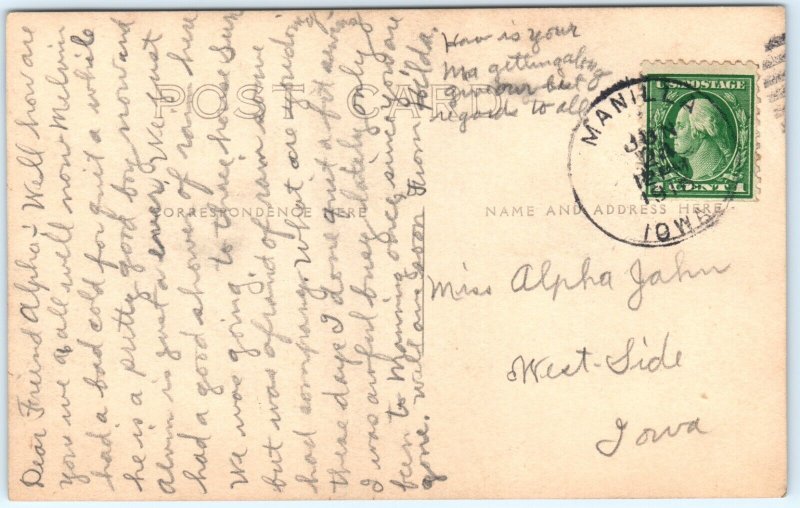 Dear Friend Alpha:- Well how are
you we are all well now Melvin
had a bad cold for quit a while
he is a pretty good boy now and
Alvin is just a We just
had a good shower of rain here
We was going to three house Sun
but was afraid of rain some
had company. What are you doing
these days I done quit a bit
I was awful busy lately only
been to Manning once since you are
gone. Well ans soon From Hilda.
How is your
Ma getting along
give our best
regards to all
POST CARD
CORRESPONDENCE HERE
NAME AND ADDRESS HERE
MANILLA
JAN
IOWA
U.S. POSTAGE
1 CENT 1
Miss Alpha Jahn
West-Side
Iowa